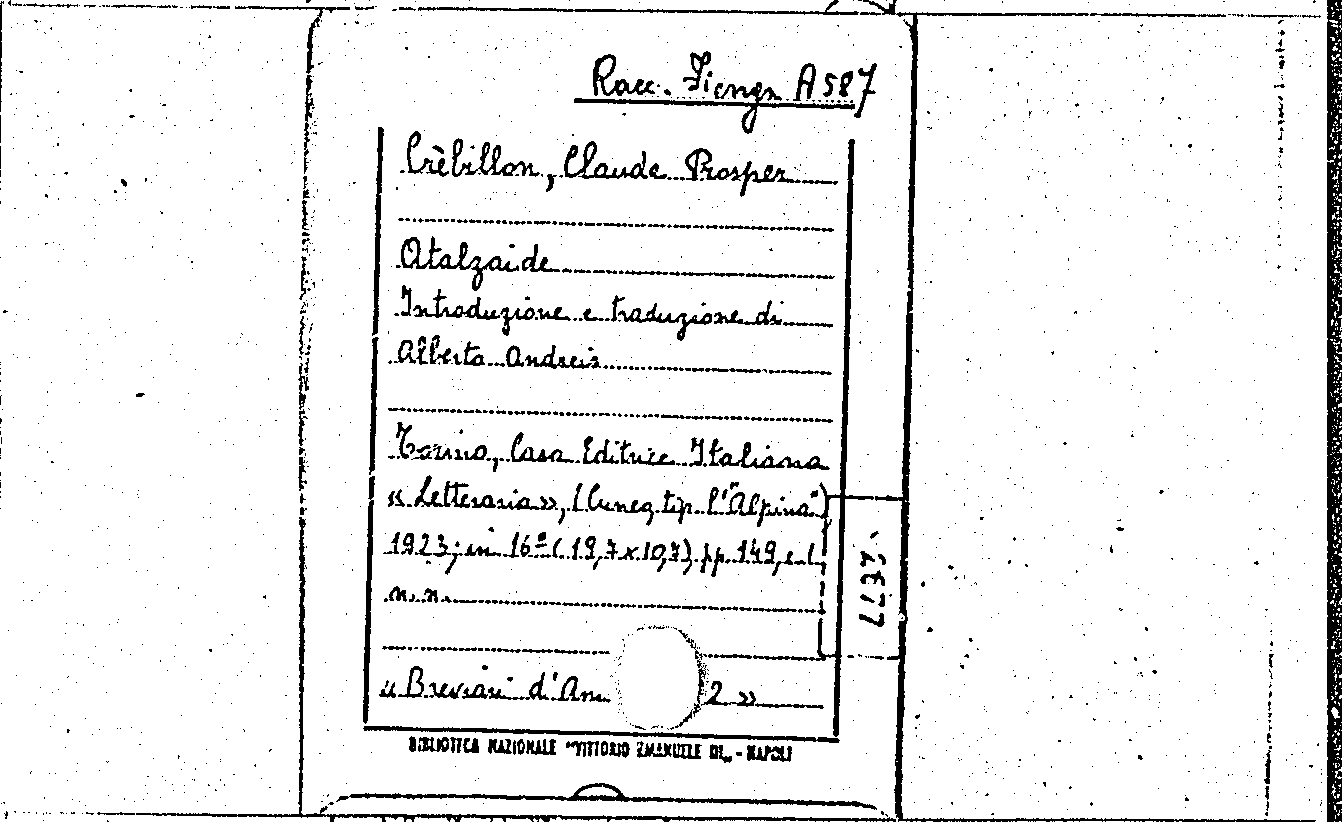 Racc. Fienga A 587
Crèbillon, Claude Prosper
Atalzaide
Introduzione e traduzione di
Alberto Andreis
Torino, Casa Editrice Italiana
« Letteraria », (Cuneo, tip. l'"Alpina")
1923; in 16º (19,7 x 10,7) pp. 149, e 1
n. n.
« Breviari d'Am 2 »
BIBLIOTECA NAZIONALE "VITTORIO EMANUELE III„ - NAPOLI